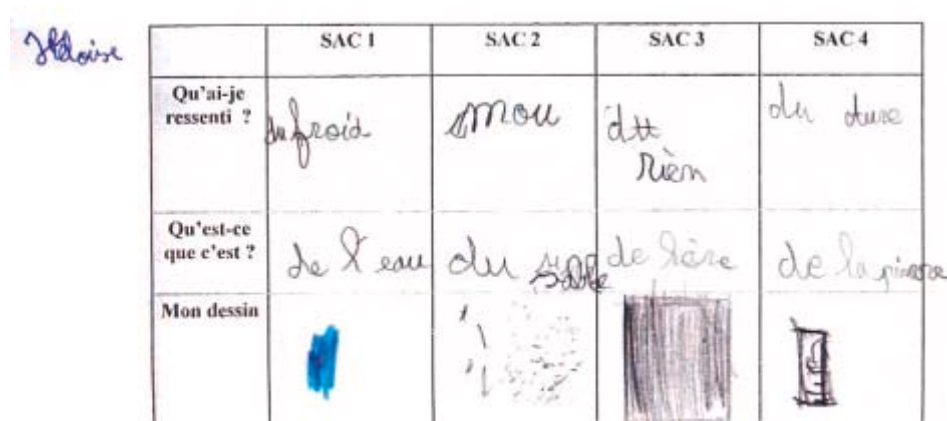 Héloïse
SAC 1 SAC 2 SAC 3 SAC 4
Qu'ai-je
ressenti ?
du froid mou du dure
rièn
Qu'est-ce
que c'est ?
de l'eau du sable de la
Mon dessin